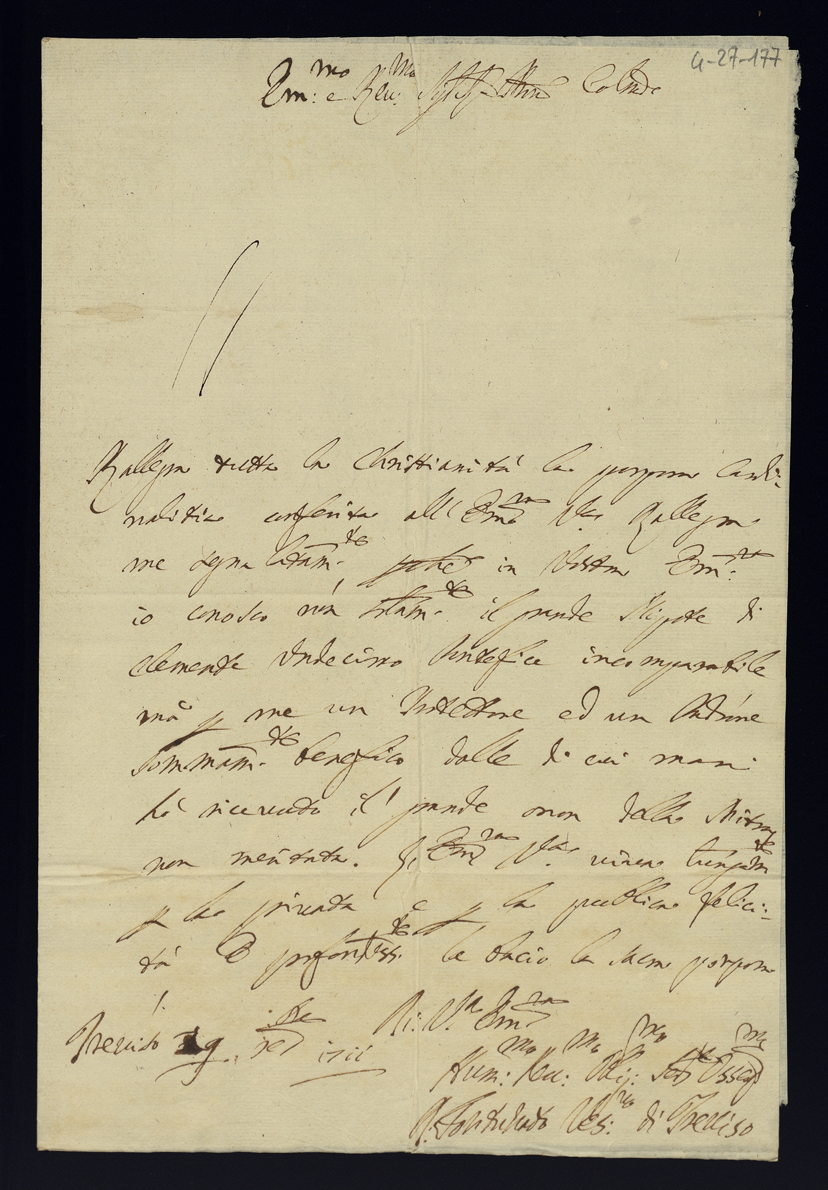 4-27-177
Em:mo e Rev:mo Sig.r Sig.r Prōn Col.mo
Rallegra tutta la Christianità la porpora Cardi:
nalitia conferita all' Em̄a V.ra Rallegra
me segnalatam.te perche in Vostra Em̄:za
io conosco nōn solam.te il grande Nipote di
Clemente Undecimo Pontefice incomparabile
mà p me un Protettore ed un Padrone
sommam.te benefico dalle di cui mani
hò ricevuto il grande onor della Mitra
non meritata. Em̄za V.ra viva lungam.te
p la privata e p la publica felici:
tà E le bacio la sacra porpora
Treviso 29. 1711
Di V.ra Em̄za
Hum:mo Rev:mo Obli:mo Ser.e Osseq.mo
Fortunato Ves:vo di Treviso